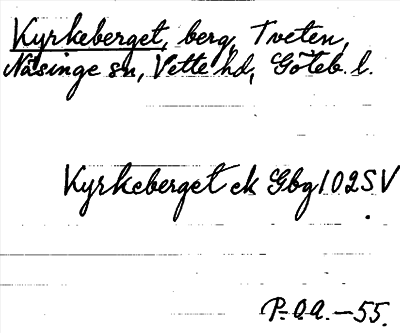 Kyrkeberget, berg, Tveten,
Näsinge sn, Vette hd, Göteb. l.
Kyrkeberget ek Gbg 102 SV
P.O.A. -55.